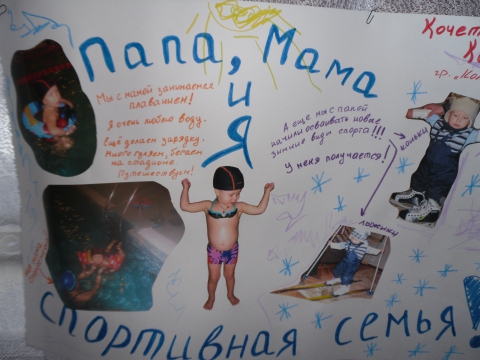 Папа, Мама
и Я
спортивная семья!
Мы с папой занимаемся
плаванием!
Я очень люблю воду.
Ещё делаем зарядку.
Много гуляем, бегаем
на стадионе
Путешествуем!
А ещё мы с папой
начали осваивать новые
зимние виды спорта!!!
У меня получается!
коньки
лыжи
Кочет
гр. „